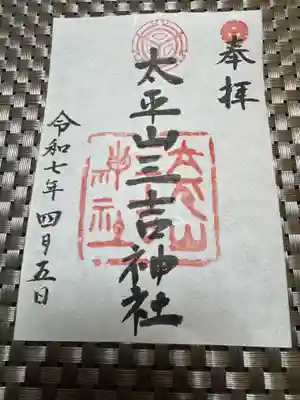 奉拝
太平山三吉神社
令和七年四月五日
太平山
神社